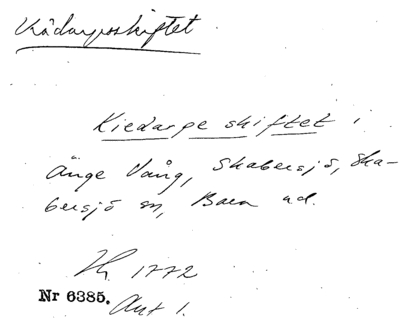 Kådarpsskiftet
Kiedarpe skiftet i
Änge Vång, Skabersjö, Ska-
bersjö sn, Bara hd.
Lm 1772
Nr 6385. Akt 1.